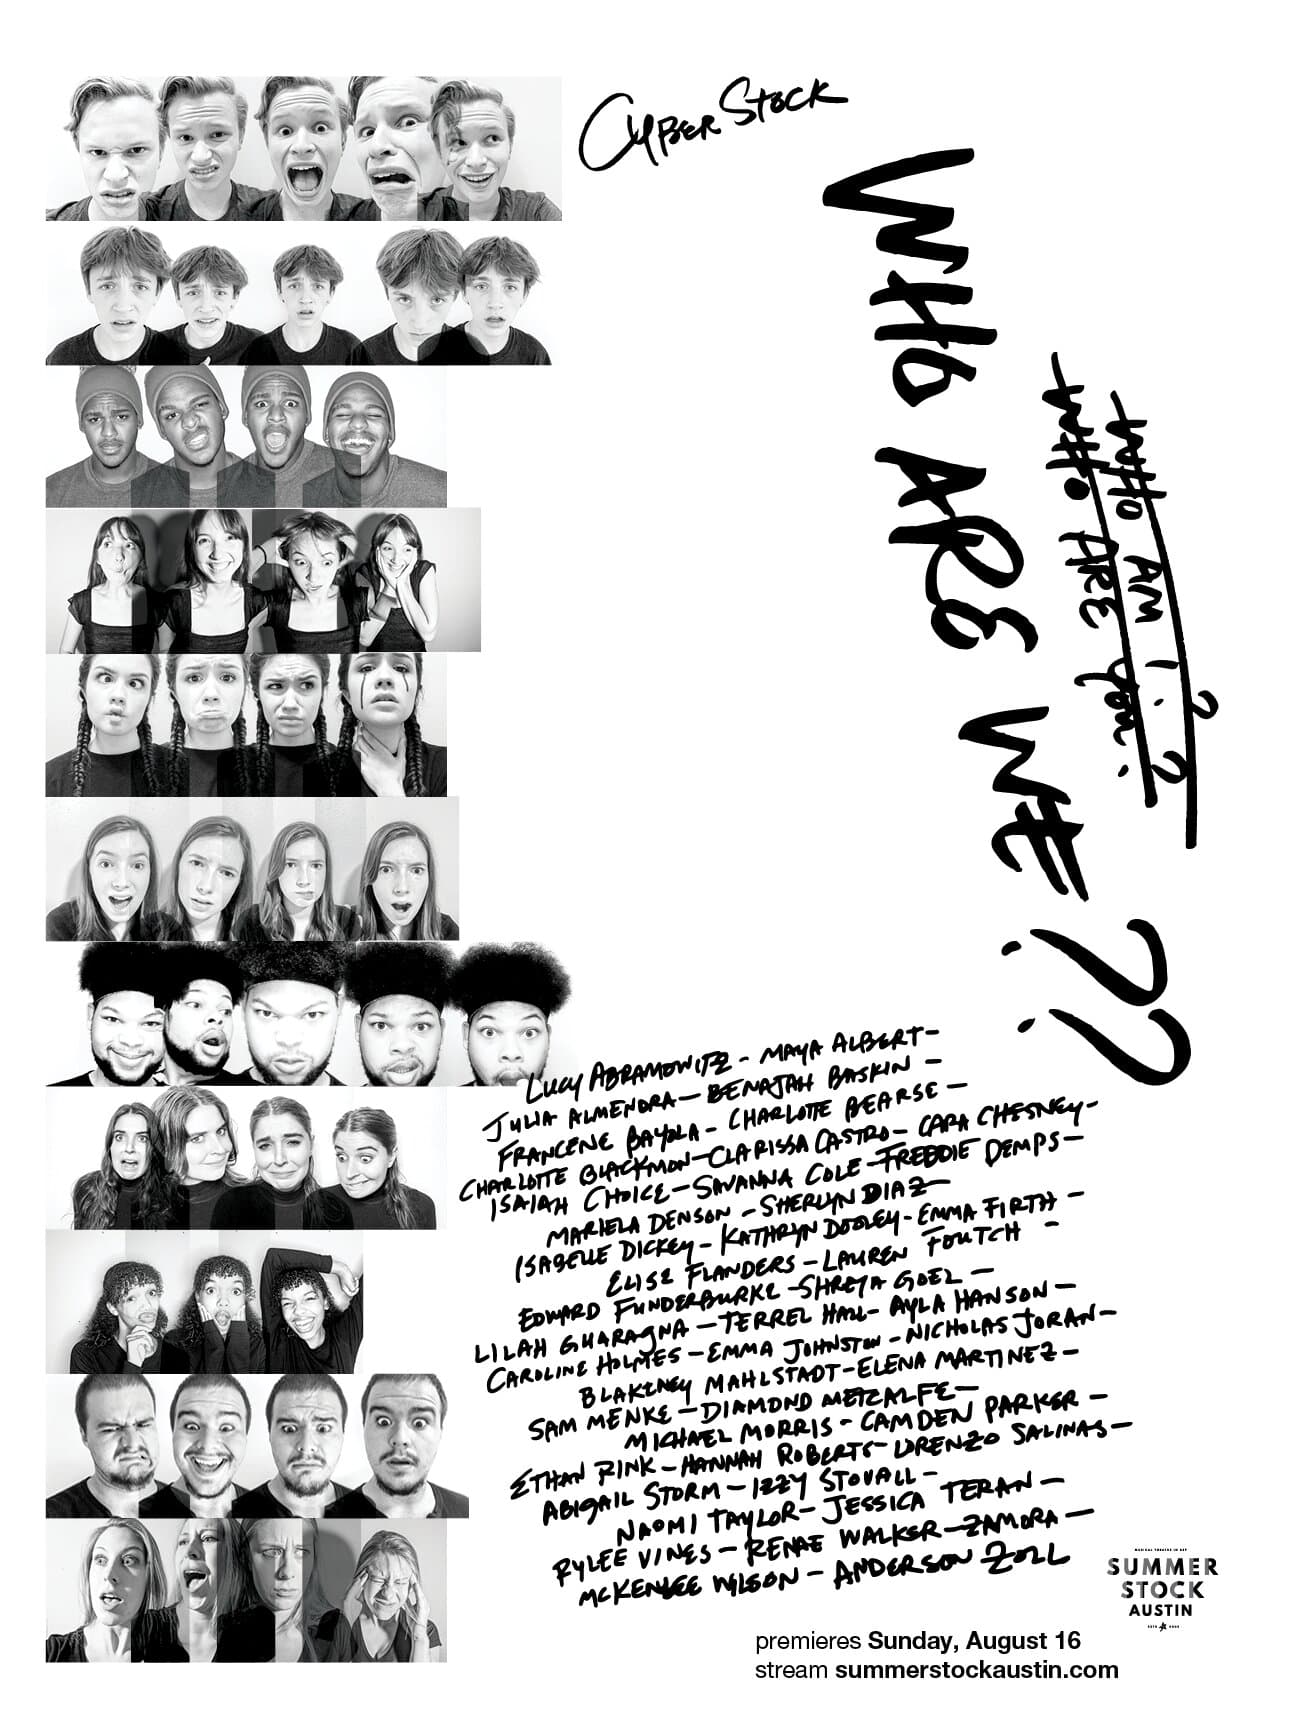 CYBER STOCK
WHO ARE WE??
WHO AM I?
WHO ARE YOU?
LUCY ABRAMOWITZ - MAYA ALBERT -
JULIA ALMENDRA - BENAJAH BASKIN -
FRANCENE BAYOLA - CHARLOTTE BEARSE -
CHARLOTTE BLACKMON - CLARISSA CASTRO - CARA CHESNEY -
ISAIAH CHOICE - SAVANNA COLE - FREDDIE DEMPS -
MARIELA DENSON - SHERLYN DIAZ -
ISABELLE DICKEY - KATHRYN DOOLEY - EMMA FIRTH -
ELISE FLANDERS - LAUREN FOUTCH -
EDWARD FUNDERBURKE - SHREYA GOEL -
LILAH GUARAGNA - TERREL HALL - AYLA HANSON -
CAROLINE HOLMES - EMMA JOHNSTON - NICHOLAS JORAN -
BLAKENEY MAHLSTADT - ELENA MARTINEZ -
SAM MENKE - DIAMOND METCALFE -
MICHAEL MORRIS - CAMDEN PARKER -
ETHAN RINK - HANNAH ROBERTS - LORENZO SALINAS -
ABIGAIL STORM - IZZY STOVALL -
NAOMI TAYLOR - JESSICA TERAN -
RYLEE VINES - RENAE WALKER - ZAMORA -
MCKENLEE WILSON - ANDERSON ZOLL
MUSICAL THEATRE IN ATX
SUMMER
STOCK
AUSTIN
premieres Sunday, August 16
stream summerstockaustin.com